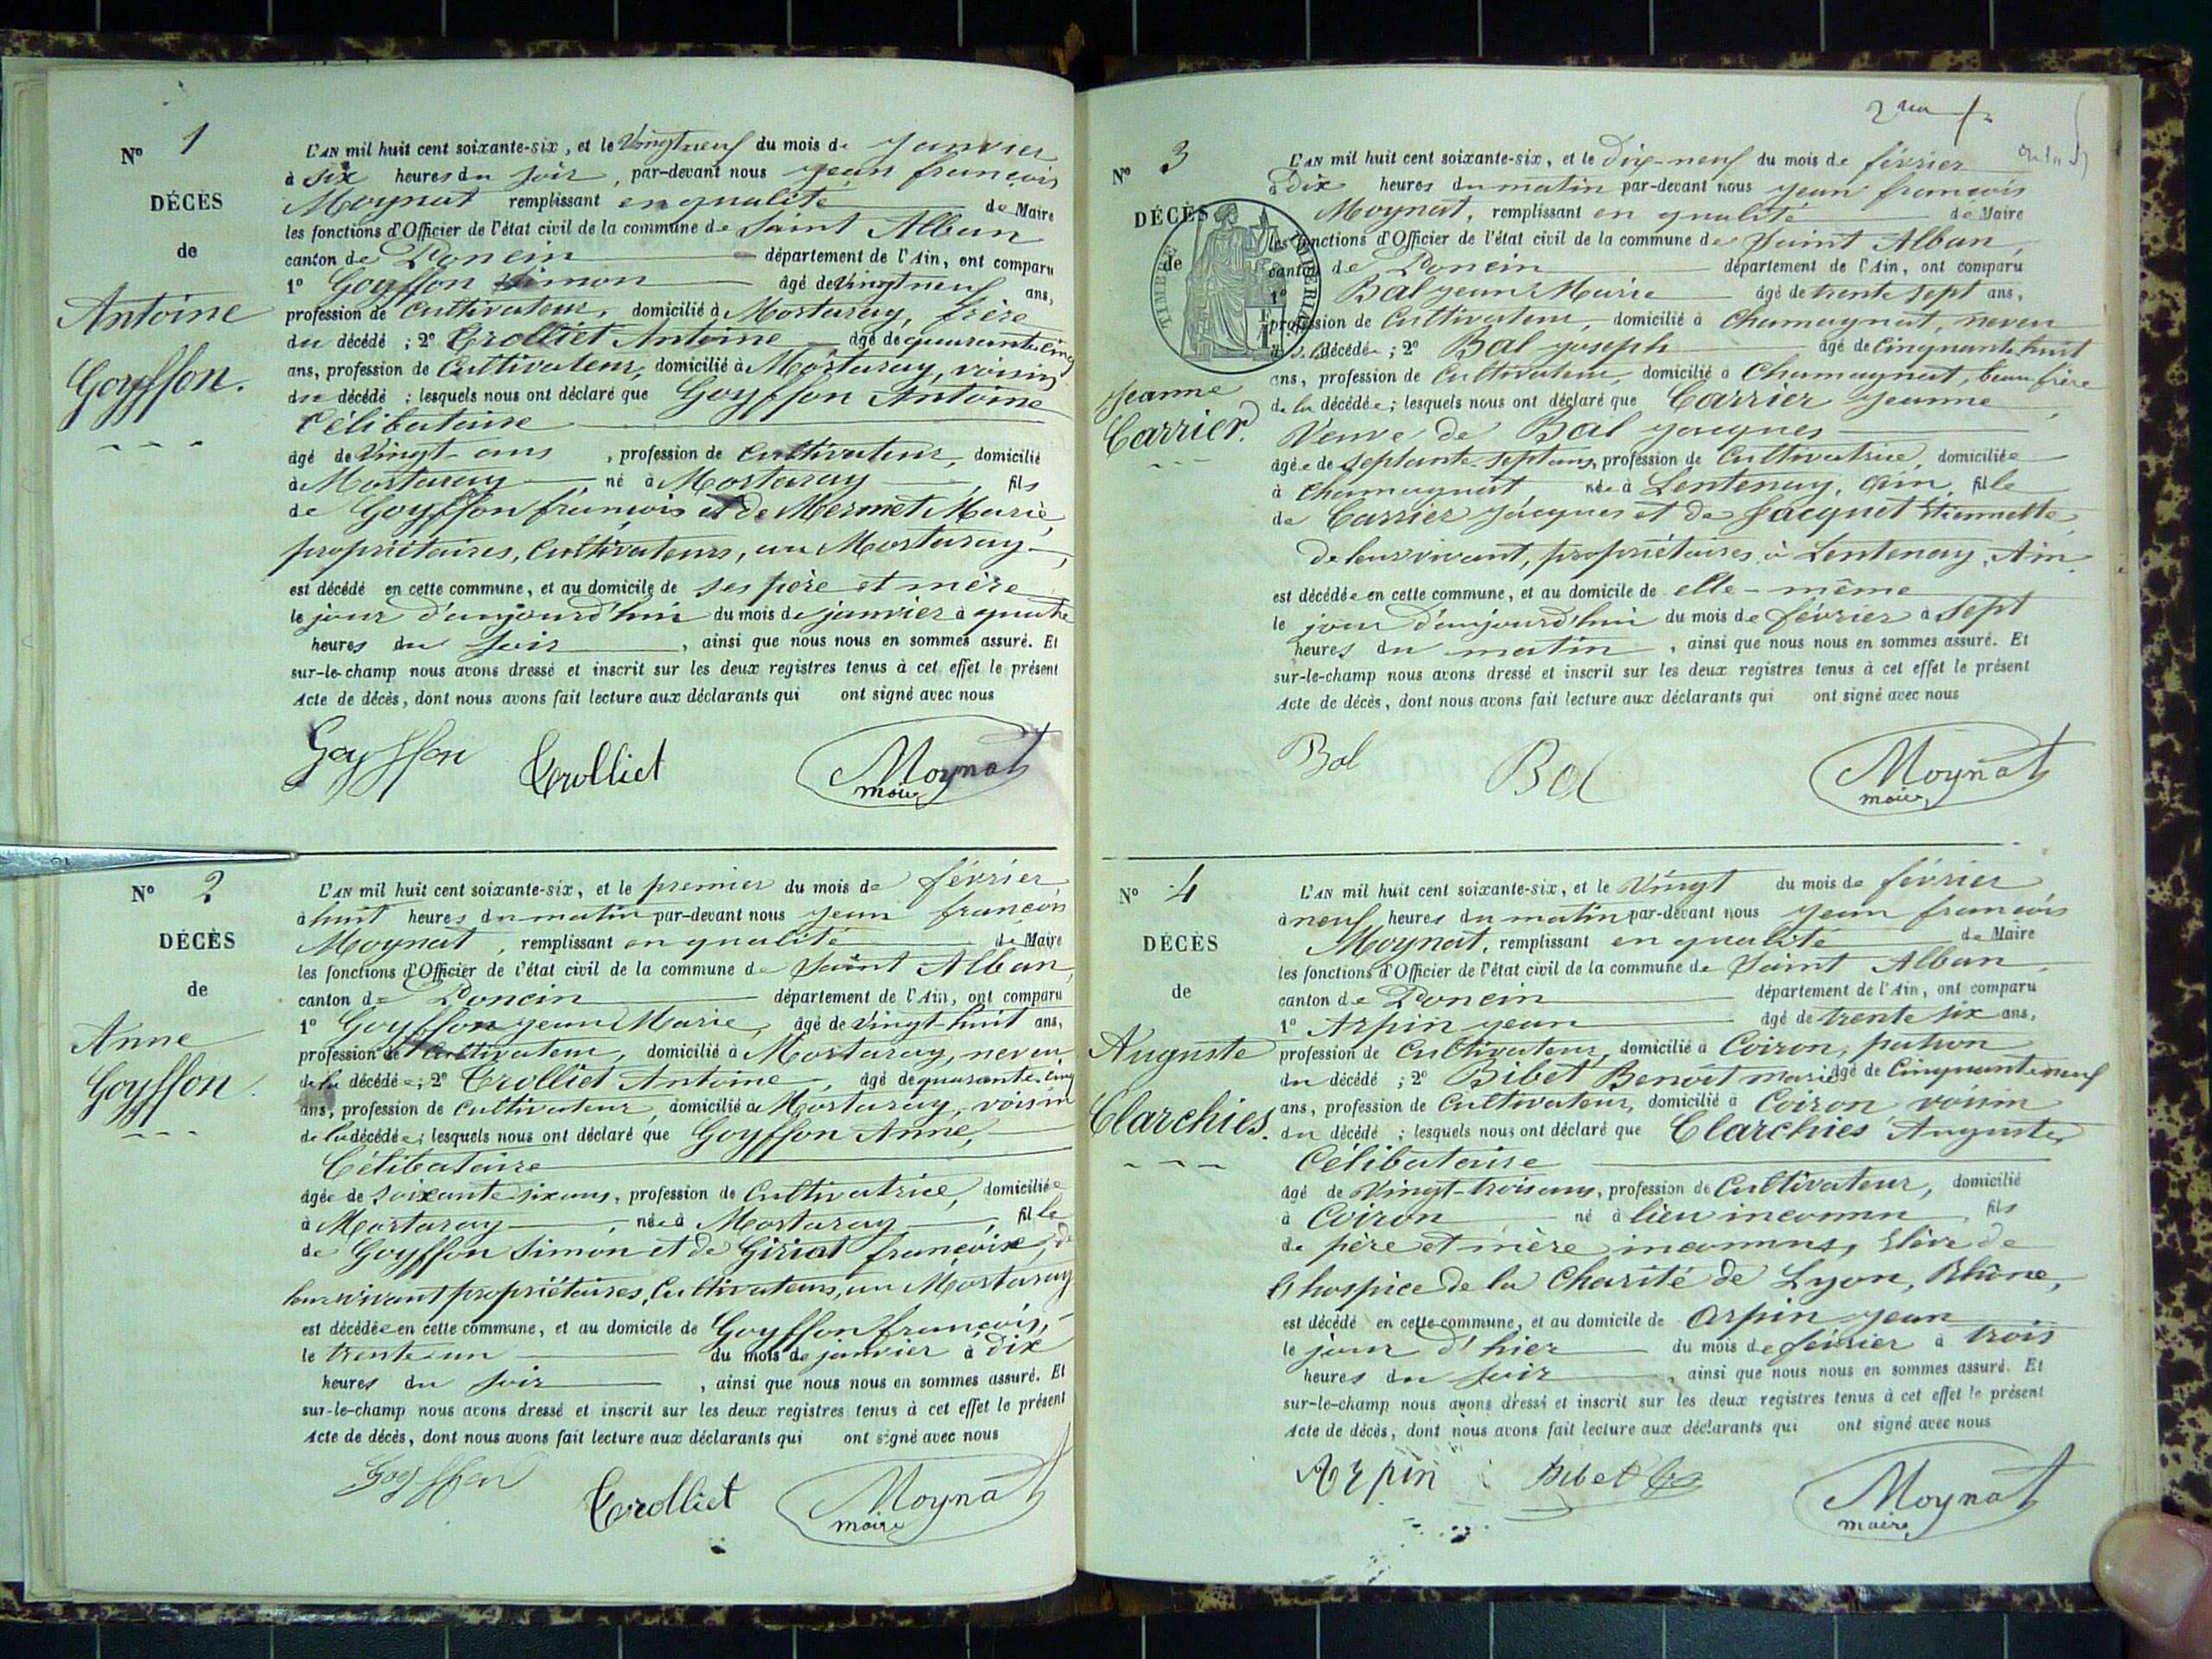 N° 1
DÉCÈS
de
Antoine
Goyffon.
L'AN mil huit cent soixante-six, et le Vingt neuf du mois de janvier
à six heures du soir, par-devant nous jean françois
Moynat remplissant en qualité de Maire
les fonctions d'Officier de l'état civil de la commune de Saint Alban
canton de Poncin département de l'Ain, ont comparu
1° Goyffon Simon âgé de vingt neuf ans,
profession de Cultivateur, domicilié à Mortaray, frère
du décédé ; 2° Trolliet Antoine âgé de quarante cinq
ans, profession de Cultivateur, domicilié à Mortaray, voisin
du décédé ; lesquels nous ont déclaré que Goyffon Antoine
Célibataire
âgé de Vingt-ans, profession de Cultivateur, domicilié
à Mortaray, né à Mortaray, fils
de Goyffon françois et de Mermet Marie,
propriétaires, Cultivateurs, au Mortaray,
est décédé en cette commune, et au domicile de ses père et mère
le jour d'aujourd'hui du mois de janvier à quatre
heures du soir, ainsi que nous nous en sommes assuré. Et
sur-le-champ nous avons dressé et inscrit sur les deux registres tenus à cet effet le présent
Acte de décès, dont nous avons fait lecture aux déclarants qui ont signé avec nous
Goyffon Trolliet Moynat
maire
N° 2
DÉCÈS
de
Anne
Goyffon.
L'AN mil huit cent soixante-six, et le premier du mois de février,
à huit heures du matin par-devant nous jean françois
Moynat, remplissant en qualité de Maire
les fonctions d'Officier de l'état civil de la commune de Saint Alban,
canton de Poncin département de l'Ain, ont comparu
1° Goyffon jean Marie, âgé de vingt-huit ans,
profession de Cultivateur, domicilié à Mortaray, neveu
de la décédée ; 2° Trolliet Antoine, âgé de quarante cinq
ans, profession de Cultivateur, domicilié à Mortaray, voisin
de la décédée ; lesquels nous ont déclaré que Goyffon Anne,
Célibataire
âgée de soixante six ans, profession de Cultivatrice, domiciliée
à Mortaray, née à Mortaray, fille
de Goyffon Simon et de Giriat françoise, de
leur vivant propriétaires, Cultivateurs, au Mortaray
est décédée en cette commune, et au domicile de Goyffon françois,
le trente un du mois de janvier à dix
heures du soir, ainsi que nous nous en sommes assuré. Et
sur-le-champ nous avons dressé et inscrit sur les deux registres tenus à cet effet le présent
Acte de décès, dont nous avons fait lecture aux déclarants qui ont signé avec nous
Goyffon Trolliet Moynat
maire
N° 3
DÉCÈS
de
Jeanne
Carrier.
TIMBRE IMPÉRIAL
L'AN mil huit cent soixante-six, et le Dix-neuf du mois de février
à Dix heures du matin par-devant nous jean françois
Moynat, remplissant en qualité de Maire
les fonctions d'Officier de l'état civil de la commune de Saint Alban,
canton de Poncin département de l'Ain, ont comparu
1° Bal jean Marie âgé de trente sept ans,
profession de Cultivateur, domicilié à Chamagnat, neveu
de la décédée ; 2° Bal joseph âgé de Cinquante huit
ans, profession de Cultivateur, domicilié à Chamagnat, beau frère
de la décédée ; lesquels nous ont déclaré que Carrier Jeanne,
Veuve de Bal jacques
âgée de Septante-sept ans, profession de Cultivatrice, domiciliée
à Chamagnat, née à Lentenay, Ain, fille
de Carrier Jacques et de Jacquet Etiennette,
de leur vivant, propriétaires à Lentenay, Ain.
est décédée en cette commune, et au domicile de elle-même
le jour d'aujourd'hui du mois de février à sept
heures du matin, ainsi que nous nous en sommes assuré. Et
sur-le-champ nous avons dressé et inscrit sur les deux registres tenus à cet effet le présent
Acte de décès, dont nous avons fait lecture aux déclarants qui ont signé avec nous
Bal Bal Moynat
maire
N° 4
DÉCÈS
de
Auguste
Clarchies.
L'AN mil huit cent soixante-six, et le Vingt du mois de février,
à neuf heures du matin par-devant nous jean françois
Moynat, remplissant en qualité de Maire
les fonctions d'Officier de l'état civil de la commune de Saint Alban,
canton de Poncin département de l'Ain, ont comparu
1° Arpin jean âgé de trente six ans,
profession de Cultivateur, domicilié à Coiron, patron
du décédé ; 2° Bibet Benoît marie âgé de Cinquante neuf
ans, profession de Cultivateur, domicilié à Coiron, voisin
du décédé ; lesquels nous ont déclaré que Clarchies Auguste,
Célibataire
âgé de Vingt-trois ans, profession de Cultivateur, domicilié
à Coiron né à lieu inconnu, fils
de père et mère inconnus, Elève de
l'hospice de la Charité de Lyon, Rhône,
est décédé en cette commune, et au domicile de Arpin jean
le jour d'hier du mois de février à trois
heures du soir, ainsi que nous nous en sommes assuré. Et
sur-le-champ nous avons dressé et inscrit sur les deux registres tenus à cet effet le présent
Acte de décès, dont nous avons fait lecture aux déclarants qui ont signé avec nous
Arpin Bibet Moynat
maire